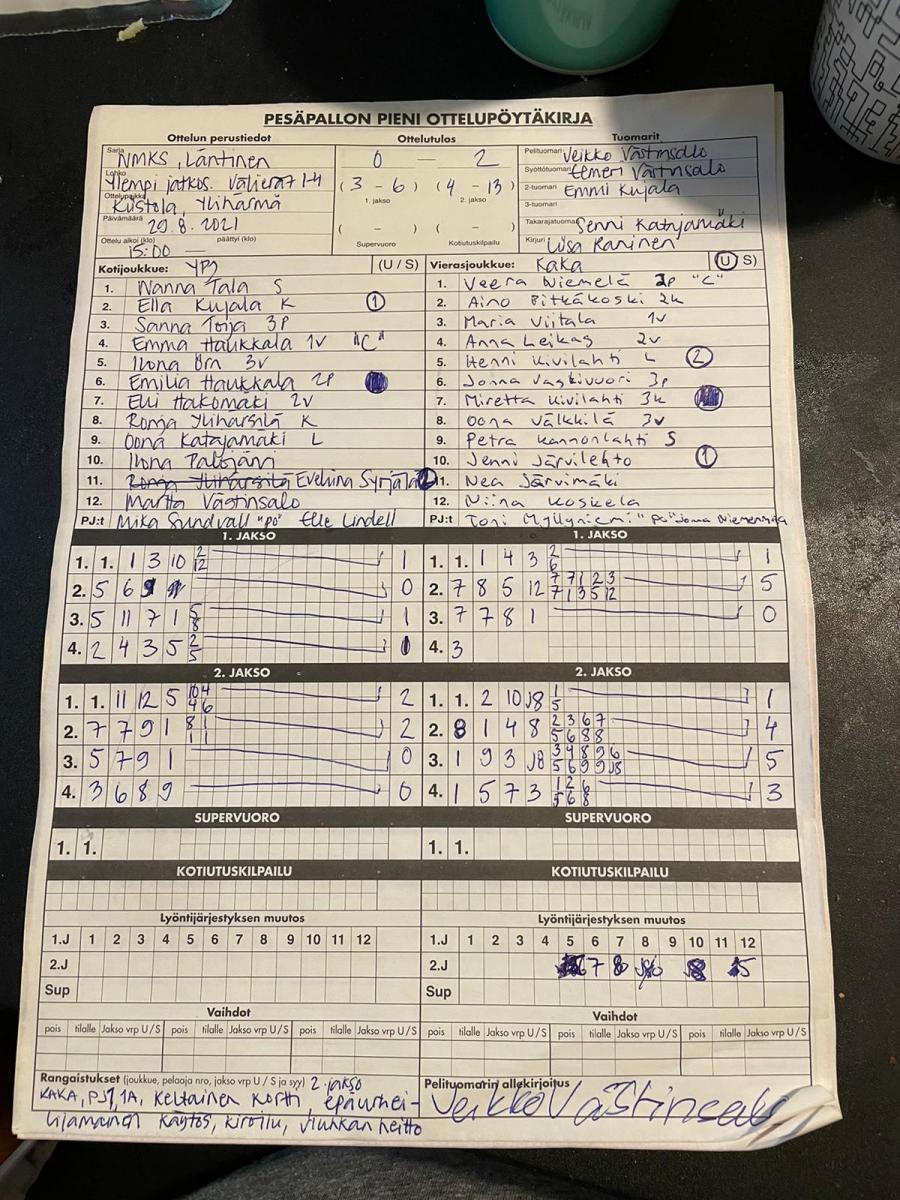 PESÄPALLON PIENI OTTELUPÖYTÄKIRJA
Ottelun perustiedot Ottelutulos Tuomarit
Sarja NMKS, Läntinen
Lohko Ylempi jatkos. Välierät 1-4
Ottelupaikka Kiistola, Ylihärmä
Päivämäärä 29.8.2021
Ottelu alkoi (klo) 15:00 päättyi (klo) —
0 — 2
(3 - 6) (4 - 13)
1. jakso 2. jakso
( - ) ( - )
Supervuoro Kotiutuskilpailu
Pelituomari Veikko Västinsalo
Syöttötuomari Elmeri Västinsalo
2-tuomari Emmi Kujala
3-tuomari
Takarajatuomari Senni Katajamäki
Kirjuri Liisa Raninen
Kotijoukkue: YPJ (U / S)
1. Nanna Tala S
2. Ella Kujala K 1
3. Sanna Torja 3P
4. Emma Haukkala 1v "C"
5. Ilona Örn 3v
6. Emilia Haukkala 2P
7. Elli Hakomäki 2v
8. Ronja Yliharsilä K
9. Oona Katajamäki L
10. Ilona Palojärvi
11. Eveliina Syrjälä 2
12. Martta Västinsalo
PJ:t Mika Sundvall "PO" Elle Lindell
Vierasjoukkue: KaKa (U S)
1. Veera Niemelä 2p "C"
2. Aino Pitkäkoski 2k
3. Maria Viitala 1v
4. Anna Leikas 2v
5. Henni Kivilahti L 2
6. Jonna Vaskivuori 3p
7. Miretta Kivilahti 3k
8. Oona Välkkilä 3v
9. Petra Kannonlahti S
10. Jenni Järvilehto 1
11. Nea Järvimäki
12. Niina Koskela
PJ:t Toni Myllyniemi "PO" Jonna
1. JAKSO 1. JAKSO
1. 1. 1 3 10 2 12 1
2. 5 6 9 0
3. 5 11 7 1 5 8 1
4. 2 4 3 5 2 5 1
1. 1. 1 4 3 2 6 1
2. 7 8 5 12 7 7 1 2 3 5
7 1 3 5 12
3. 7 7 8 1 0
4. 3
2. JAKSO 2. JAKSO
1. 1. 11 12 5 10 4 2
4 6
2. 7 7 9 1 8 1 2
1 1
3. 5 7 9 1 0
4. 3 6 8 9 0
1. 1. 2 10 J8 1 5 1
2. 8 1 4 8 2 3 6 7 4
5 6 8 8
3. 1 9 3 J8 3 4 8 9 6 5
5 6 9 9 J8
4. 1 5 7 3 1 2 6 3
5 6 8
SUPERVUORO SUPERVUORO
1. 1. 1. 1.
KOTIUTUSKILPAILU KOTIUTUSKILPAILU
Lyöntijärjestyksen muutos Lyöntijärjestyksen muutos
1.J 1 2 3 4 5 6 7 8 9 10 11 12 1.J 1 2 3 4 5 6 7 8 9 10 11 12
2.J 2.J 7 8 5
Sup Sup
Vaihdot Vaihdot
pois tilalle Jakso vrp U / S pois tilalle Jakso vrp U / S pois tilalle Jakso vrp U / S pois tilalle Jakso vrp U / S pois tilalle Jakso vrp U / S pois tilalle Jakso vrp U / S
Rangaistukset (joukkue, pelaaja nro, jakso vrp U / S ja syy) 2. jakso
KAKA, PJ1, 1A, Keltainen kortti epäurhei-
lijamainen käytös, kiroilu, hiukkan heitto
Pelituomarin allekirjoitus
Veikko Västinsalo